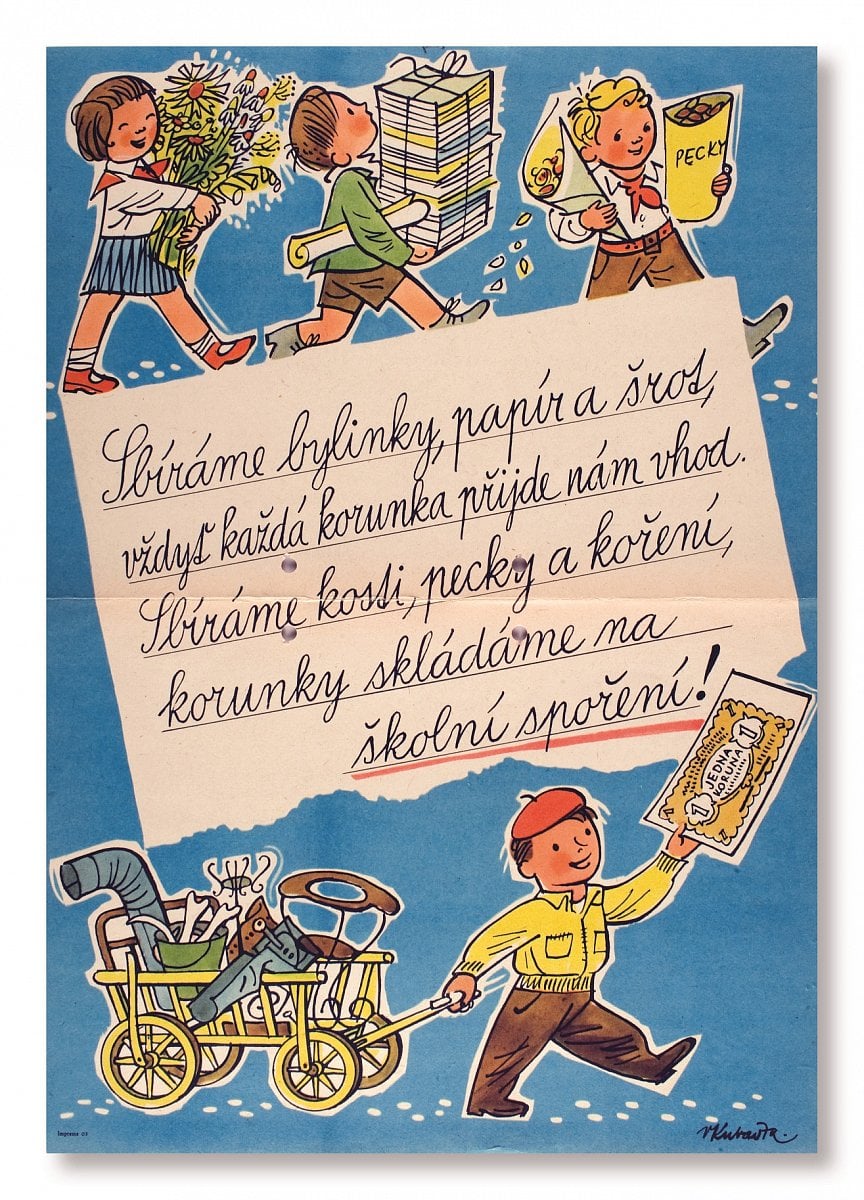 PECKY
Sbíráme bylinky, papír a šrot,
vždyť každá korunka přijde nám vhod.
Sbíráme kosti, pecky a koření,
korunky skládáme na
školní spoření!
1
1
JEDNA
KORUNA
VKubašta.